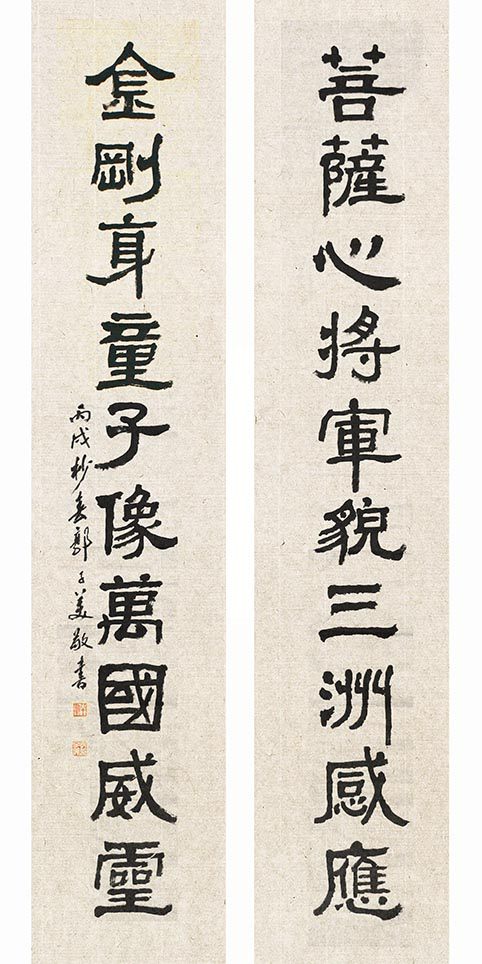 菩薩心將軍貌三洲感應
金剛身童子像萬國威靈
丙戌杪春鄭子美敬書